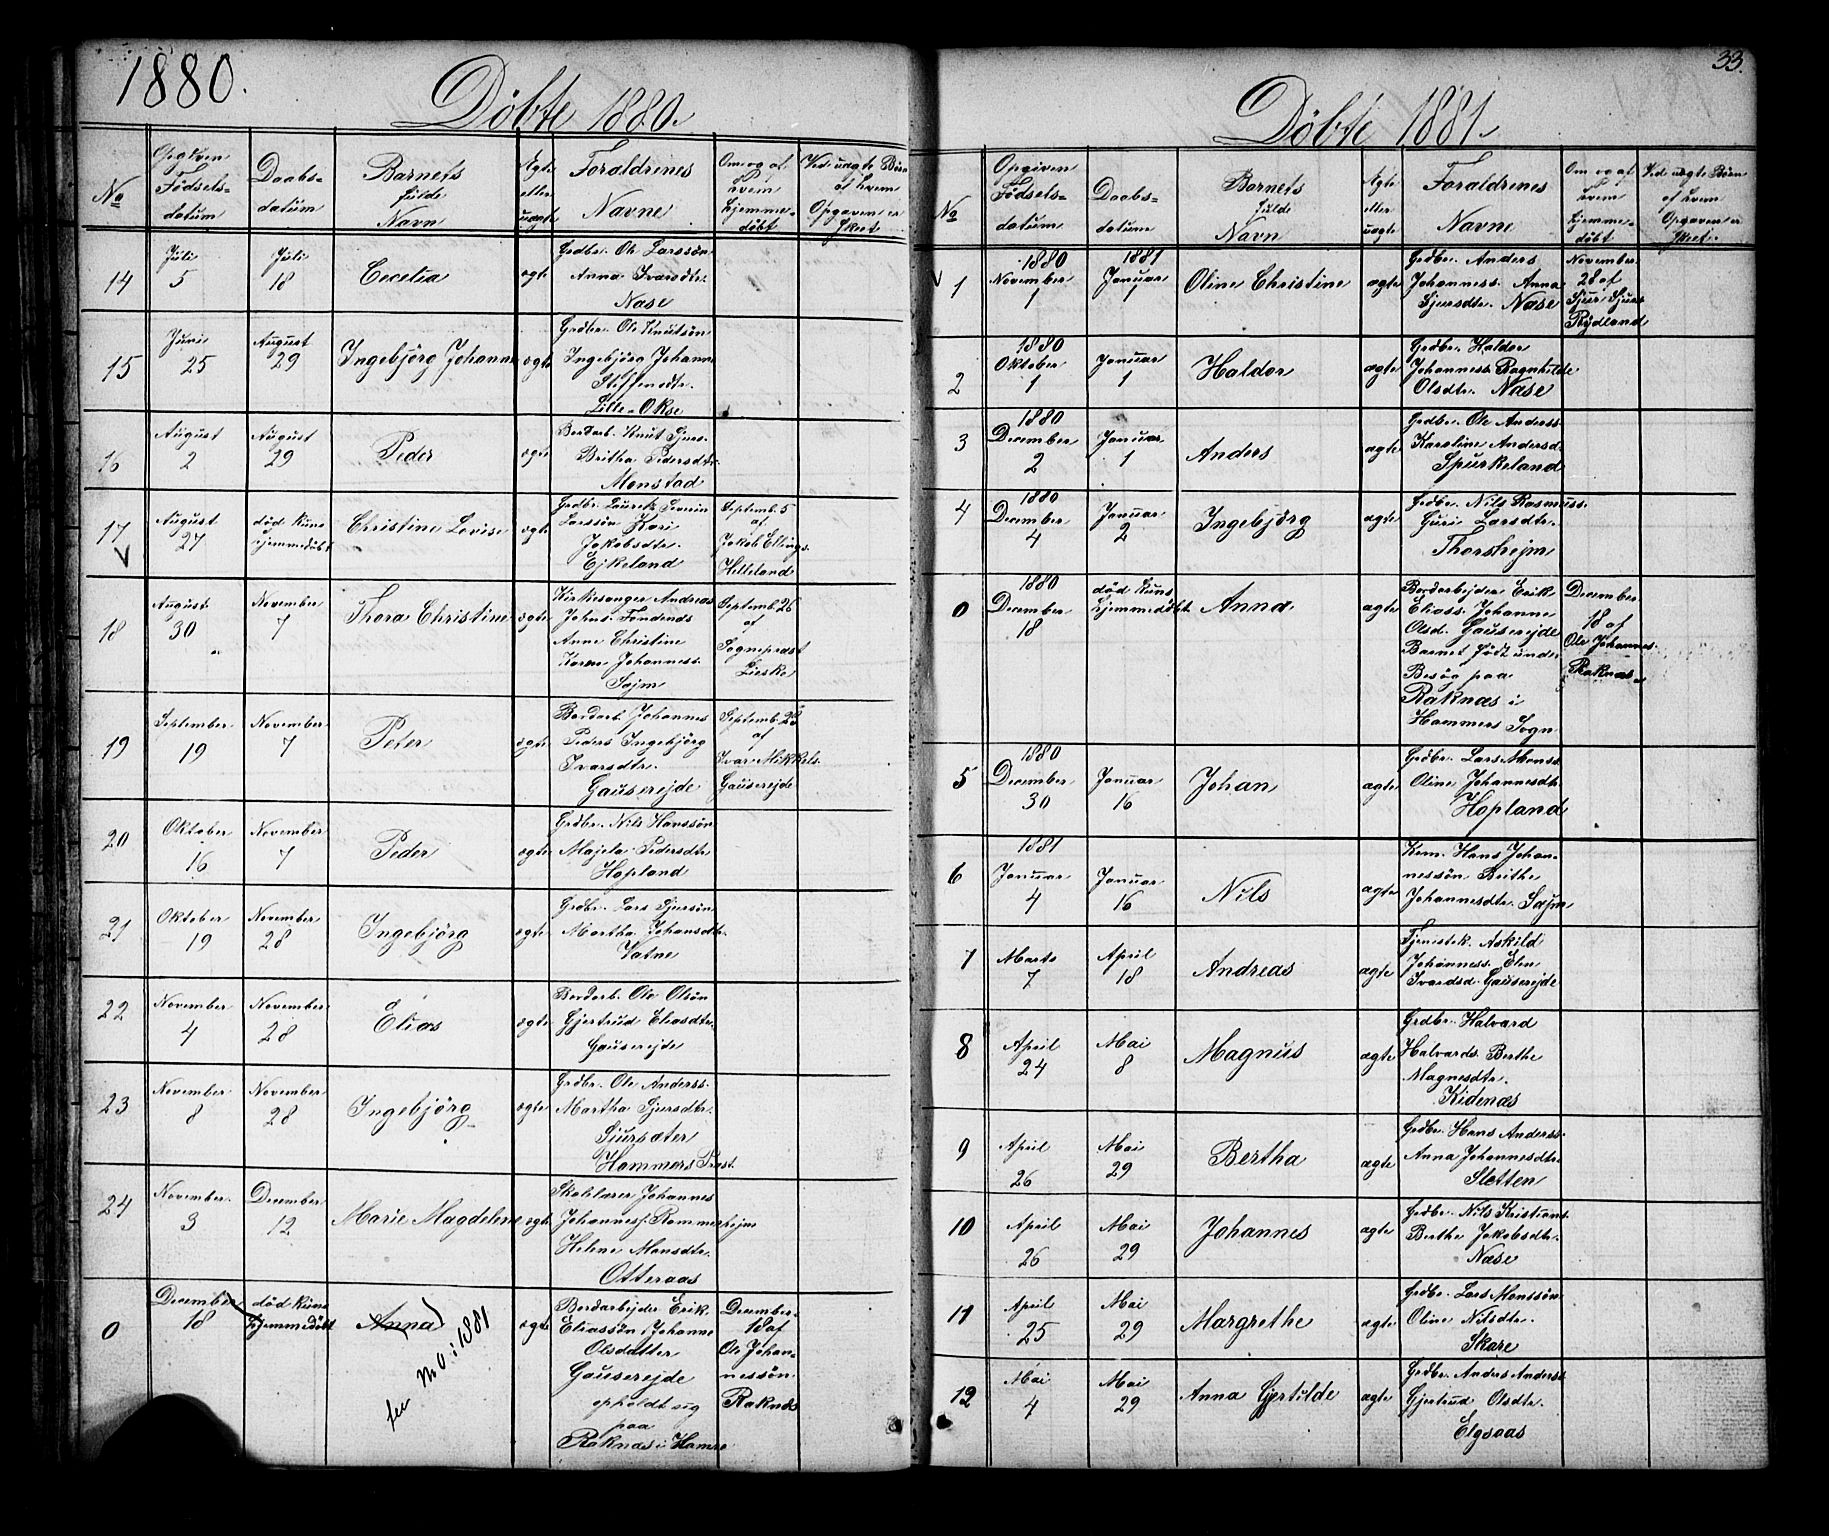 1880.
Döbte 1880.
No
Opgiven
Födsels-
datum
Daabs-
datum
Barnets
fulde
Navn
Ægte
eller
uægte
Forældrenes
Navne
Om og af
hvem
hjemme-
døbt
Ved uægte Børn
af hvem
Opgaven er
skeet
14
Juli
5
Juli
18
Cecelia
ægte
Grdbr. Ole Larssön
Anna Ivarsdtr.
Nase
15
Juni
25
August
29
Ingebjörg Johanne
ægte
Grdbr. Ole Knutsön
Ingebjörg Johanne
Steffensdtr.
Lille-Okse
16
August
2
August
29
Peder
ægte
Bordarb. Knut Sjurs.
Britha Pedersdtr.
Monstad
17
August
27
død kuns
hjemmedöbt
Christine Lovise
ægte
Grdbr. Lauretz Severin
Larssön Kari
Jakobsdtr.
Ejkeland
Septemb. 5
af
Jakob Ellings.
Helleland
18
August
30
November
7
Thora Christine
ægte
Kirkesanger Andreas
Johns. Fondenes
Anne Christine
Karen Johanness.
Sæjm
Septemb. 26
af
Sognepræst
Lieske
19
September
19
November
7
Peter
ægte
Bordarb. Johannes
Peders Ingebjörg
Ivarsdtr.
Gauserejde
Septemb. 25
af
Ivar Mikkels.
Gauserejde
20
Oktober
16
November
7
Peder
ægte
Grdbr. Nils Hanssön
Majela Pedersdtr
Hopland
21
Oktober
19
November
28
Ingebjörg
ægte
Grdbr. Lars Sjursön
Martha Johansdtr.
Vatne
22
November
4
November
28
Elias
ægte
Bordarb. Ole Olsön
Gjertrud Eliasdtr.
Gauserejde
23
November
8
November
28
Ingebjörg
ægte
Grdbr. Ole Anderss.
Martha Sjursdtr.
Sjursæter
Hammers Præst.
24
November
3
December
12
Marie Magdelene
ægte
Skolelærer Johannes
Johannesf. Rommerhejm
Helene Monsdtr.
Otteraas
0
December
18
død kuns
hjemmedöbt
Anna
see No 0 i 1881
ægte
Bordarbejder Erik
Eliassön, Johanne
Olsdatter
Gauserejde
opholdt sig
paa
Raknæs i Hamre
December
18 af
Ole Johan-
nessön
Raknæs
33.
Döbte 1881.
No
Opgiven
Födsels-
datum
Daabs-
datum
Barnets
fulde
Navn
Ægte
eller
uægte
Forældrenes
Navne
Om og af
hvem
hjemme-
døbt
Ved uægte Børn
af hvem
Opgaven er
skeet.
1
1880
November
1
1881
Januar
1
Oline Christine
ægte
Grdbr. Anders
Johanness. Anna
Sjursdtr. Nase
November
28 af
Sjur Sjurs
Rydland
2
1880
Oktober
1
Januar
1
Haldor
ægte
Grdbr. Haldor
Johanness. Ragnhilde
Olsdtr. Nase
3
1880
December
2
Januar
1
Anders
ægte
Grdbr. Ole Anderss.
Karoline Andersd.
Spurkeland
4
1880
December
4
Januar
2
Ingebjörg
ægte
Grdbr. Nils Rasmuss.
Guri Larsdtr.
Thorshejm
0
1880
December
18
død kuns
hjemmedöbt
Anna
ægte
Bordarbejder Erik
Eliass. Johanne
Olsd. Gauserejde
Barnet födt under
Besög paa
Raknæs i
Hammers Sogn
December
18 af
Ole Johannes.
Raknæs
5
1880
December
30
Januar
16
Johan
ægte
Grdbr. Lars Monss.
Oline Johannesdtr.
Hopland
6
1881
Januar
4
Januar
16
Nils
ægte
Kem. Hans Johan-
nessön Brithe
Johannesdtr. Sæjm
7
Marts
7
April
18
Andreas
ægte
Tjenestek. Askild
Johanness. Elen
Ivardsd. Gauserejde
8
April
24
Mai
8
Magnus
ægte
Grdbr. Halvard
Halvards. Berthe
Magnesdtr.
Kidenæs
9
April
26
Mai
29
Bertha
ægte
Grdbr. Hans Anderss.
Anna Johannesdtr.
Sletten
10
April
26
Mai
29
Johannes
ægte
Grdbr. Nils Kristians.
Berthe Jakobsdtr.
Nase
11
April
25
Mai
29
Margrethe
ægte
Grdbr. Lars Monssön
Oline Nilsdtr.
Skare
12
Mai
4
Mai
29
Anna Gjertilde
ægte
Grdbr. Anders Anderss.
Gjertrud Olsdtr.
Elgsaas